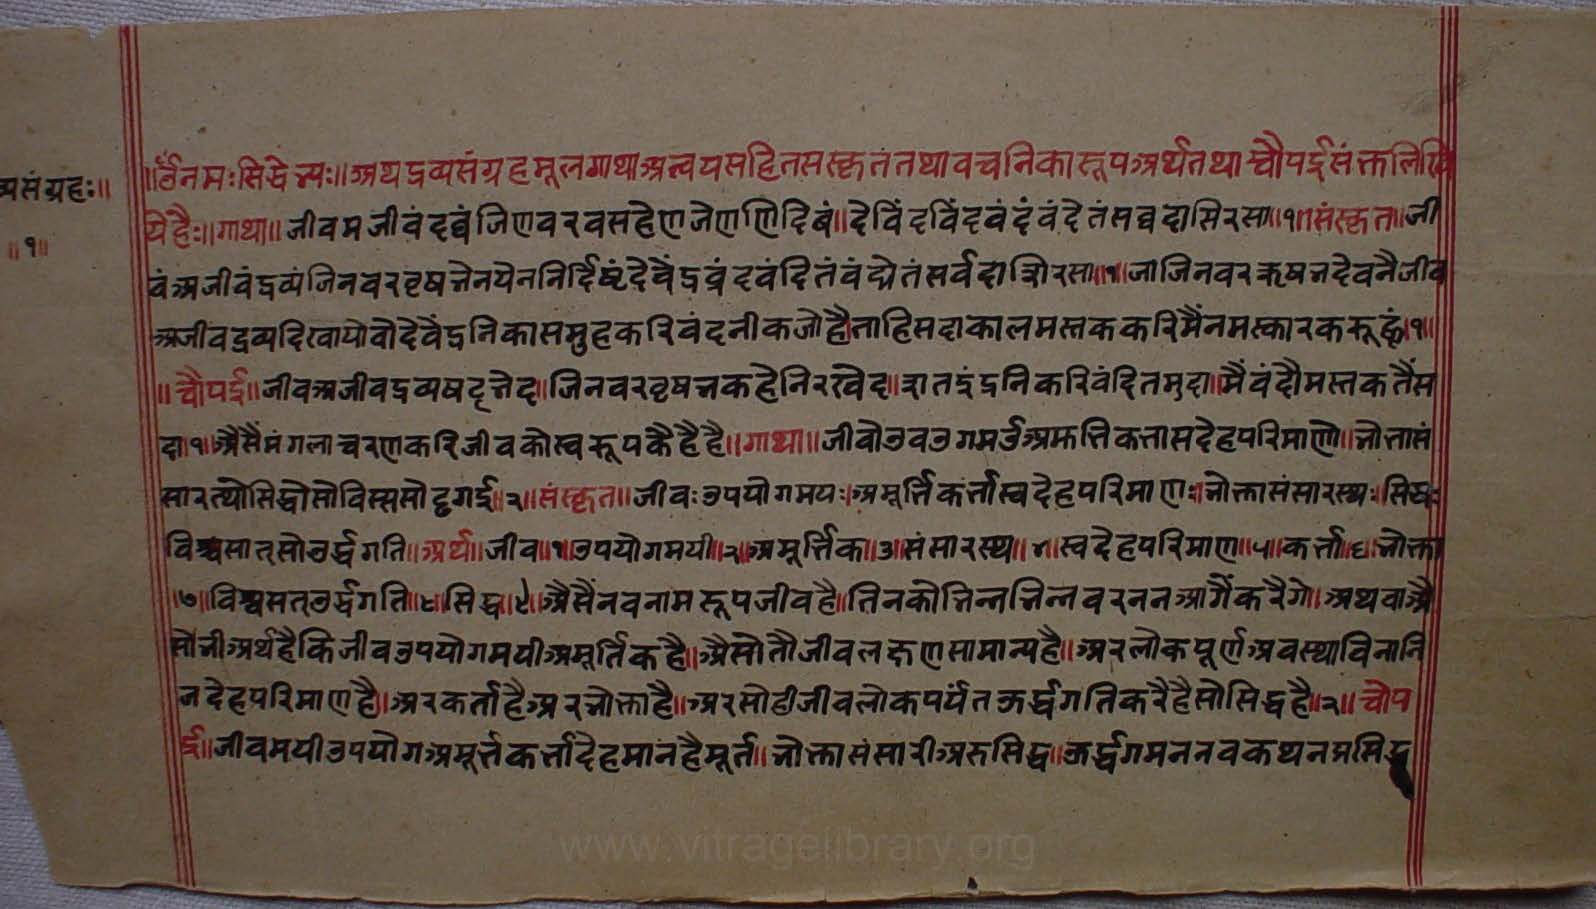 व्यसंग्रहः॥
॥१॥
॥ॐनमःसिद्धेभ्यः॥अथद्रव्यसंग्रहमूलगाथाअन्वयसहितसंस्कृतंतथावचनिकारूपअर्थतथाचौपईसंक्तलिखि
येहैः॥गाथा॥जीवमजीवंदव्वंजिणवरवसहेणजेणणिदिवं॥देविंदविंदवंदंवंदेतंसव्वदासिरसा॥१॥संस्कृत॥जी
वंअजीवंद्रव्यंजिनवरवृषभेनयेननिर्दिष्टंदेवेंद्रव्रंदवंदितंवंद्येतंसर्वदाशिरसा॥१॥जाजिनवरऋषभदेवनैजीव
अजीवद्रव्यदिखायोवोदेवेंद्रनिकासमुहकरिवंदनीकजोहैताहिसदाकालमस्तककरिमैंनमस्कारकरूहूं॥१॥
॥चौपई॥जीवअजीवद्रव्यषट्भेद॥जिनवरवृषभकहेनिरखेद॥शतइंद्रनिकरिवंदितमुदा॥मैंवंदौमस्तकतैंस
दा॥१॥अैसैंमंगलाचरणकरिजीवकोस्वरूपकैहैहै॥गाथा॥जीवोउवउगमउअमत्तिकत्तासदेहपरिमाणो॥भोत्तासं
सारत्थोसिद्धोसोविस्ससोट्ठगई॥२॥संस्कृत॥जीवःउपयोगमयः।अमूर्त्तिकर्त्तास्वदेहपरिमाणः।भोक्तासंसारस्थः।सिद्धः
विश्वसात्सोउर्द्धगति॥अर्थ॥जीव॥१॥उपयोगमयी॥२॥अमूर्त्तिक॥३॥संसारस्थ॥४॥स्वदेहपरिमाण॥५॥कर्त्ता॥६॥भोक्ता
॥७॥विश्वसत्उर्द्धगति॥८॥सिद्ध॥९॥अैसैंनवनामरूपजीवहै॥तिनकोभिन्नभिन्नवरननआगैंकरैगे॥अथवाअै
सोभीअर्थहैकिजीवउपयोगमयीअमूर्तिकहै॥अैसोतौजीवलक्षणसामान्यहै॥अरलोकपूर्णअवस्थाविनानि
जदेहपरिमाणहै।अरकर्ताहैअरभोक्ताहै॥अरसोहीजीवलोकपर्यंतऊर्द्धगतिकरैहैसोसिद्धहै॥२॥चौप
ई॥जीवमयीउपयोगअमूर्त्तकर्त्तादेहमानहैमूर्त॥भोक्तासंसारीअरुसिद्ध॥ऊर्द्धगमननवकथनप्रसिद्ध
www.vitragelibrary.org